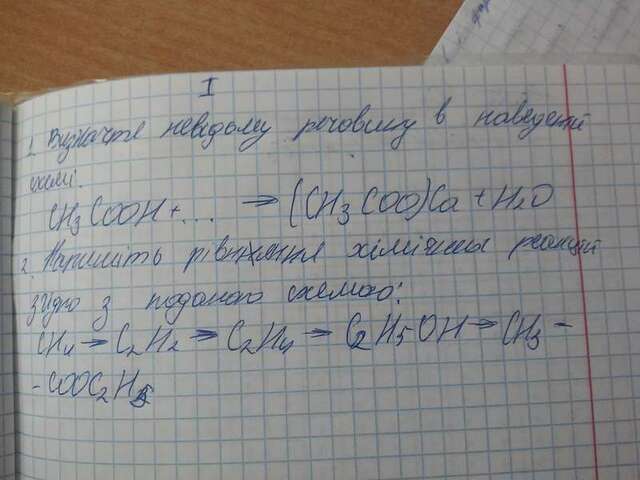 I
1. Визначте невідому речовину в наведеній
схемі.
CH3COOH + ... → (CH3COO)Ca + H2O
2. Напишіть рівняння хімічних реакцій
згідно з поданою схемою:
CH4 → C2H2 → C2H4 → C2H5OH → CH3 –
– COOC2H5